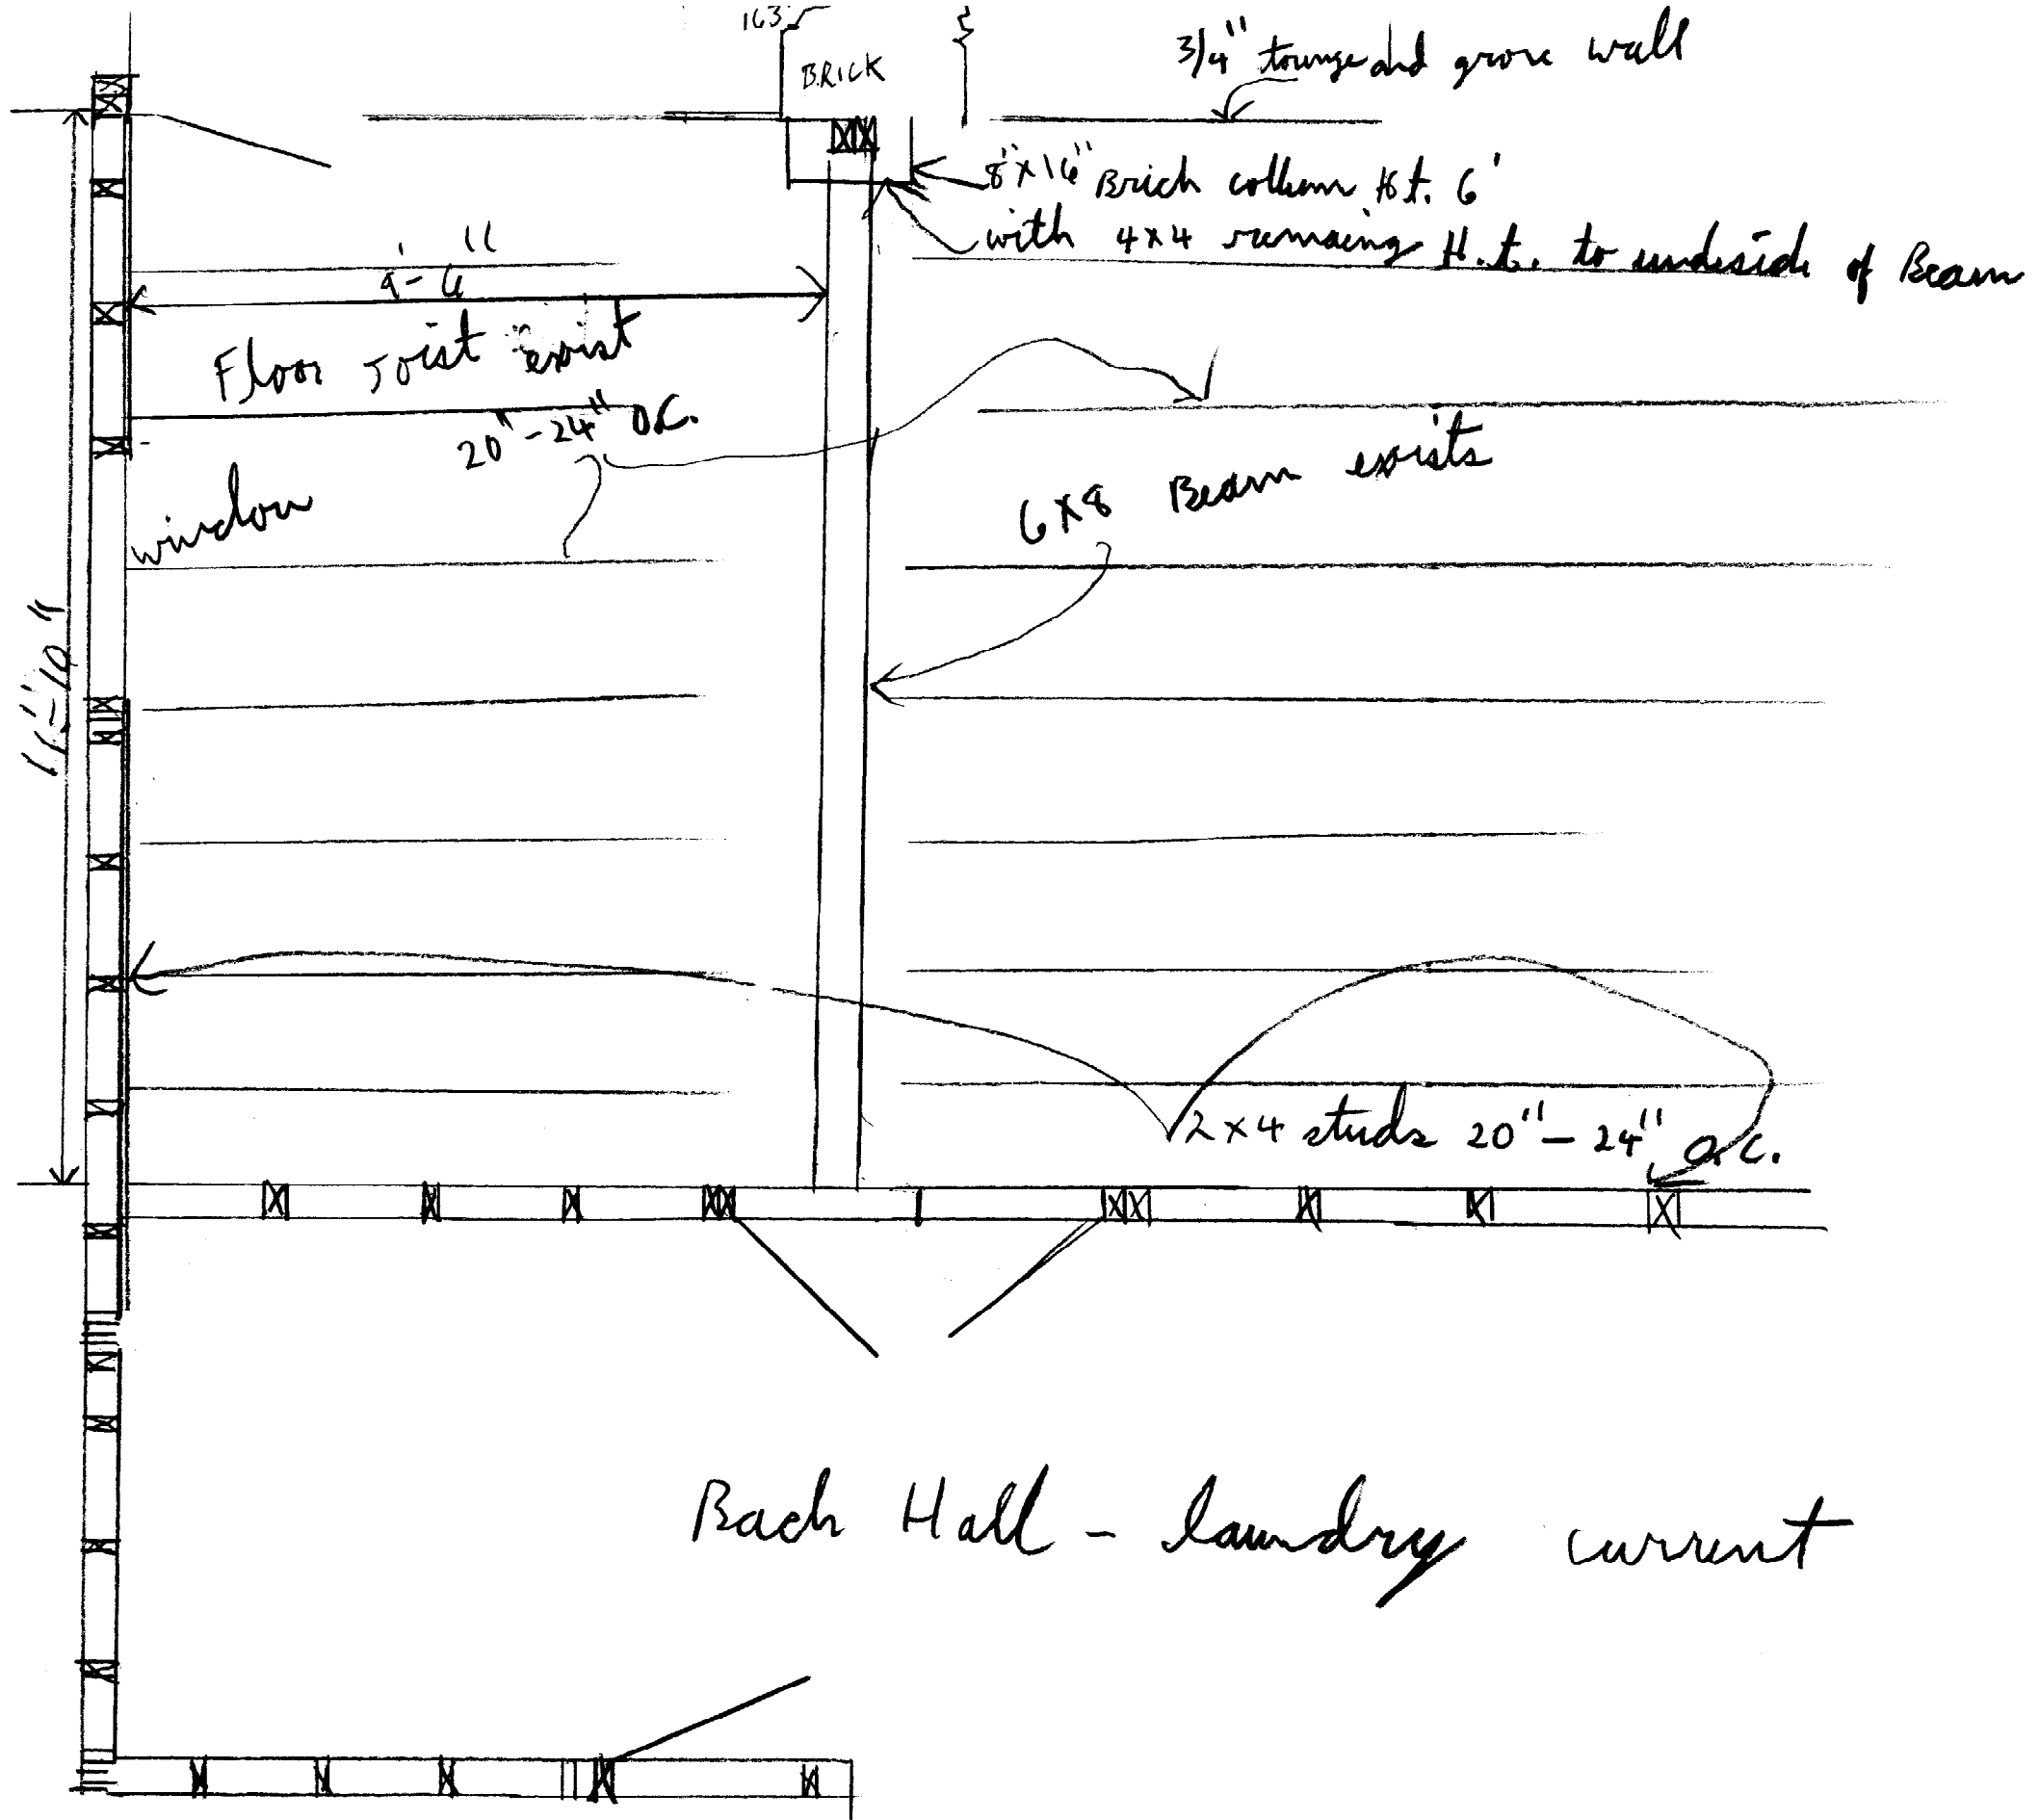 163
BRICK
3/4" tounge and grove wall
8"x16" Brick collum Ht. 6'
with 4x4 remaing H.t. to undeside of Beam
9'-6"
Floor Joist exist
20"-24" O.C.
6x8 Beam exists
window
11'-10"
2x4 studs 20"-24" O.C.
Back Hall - laundry current